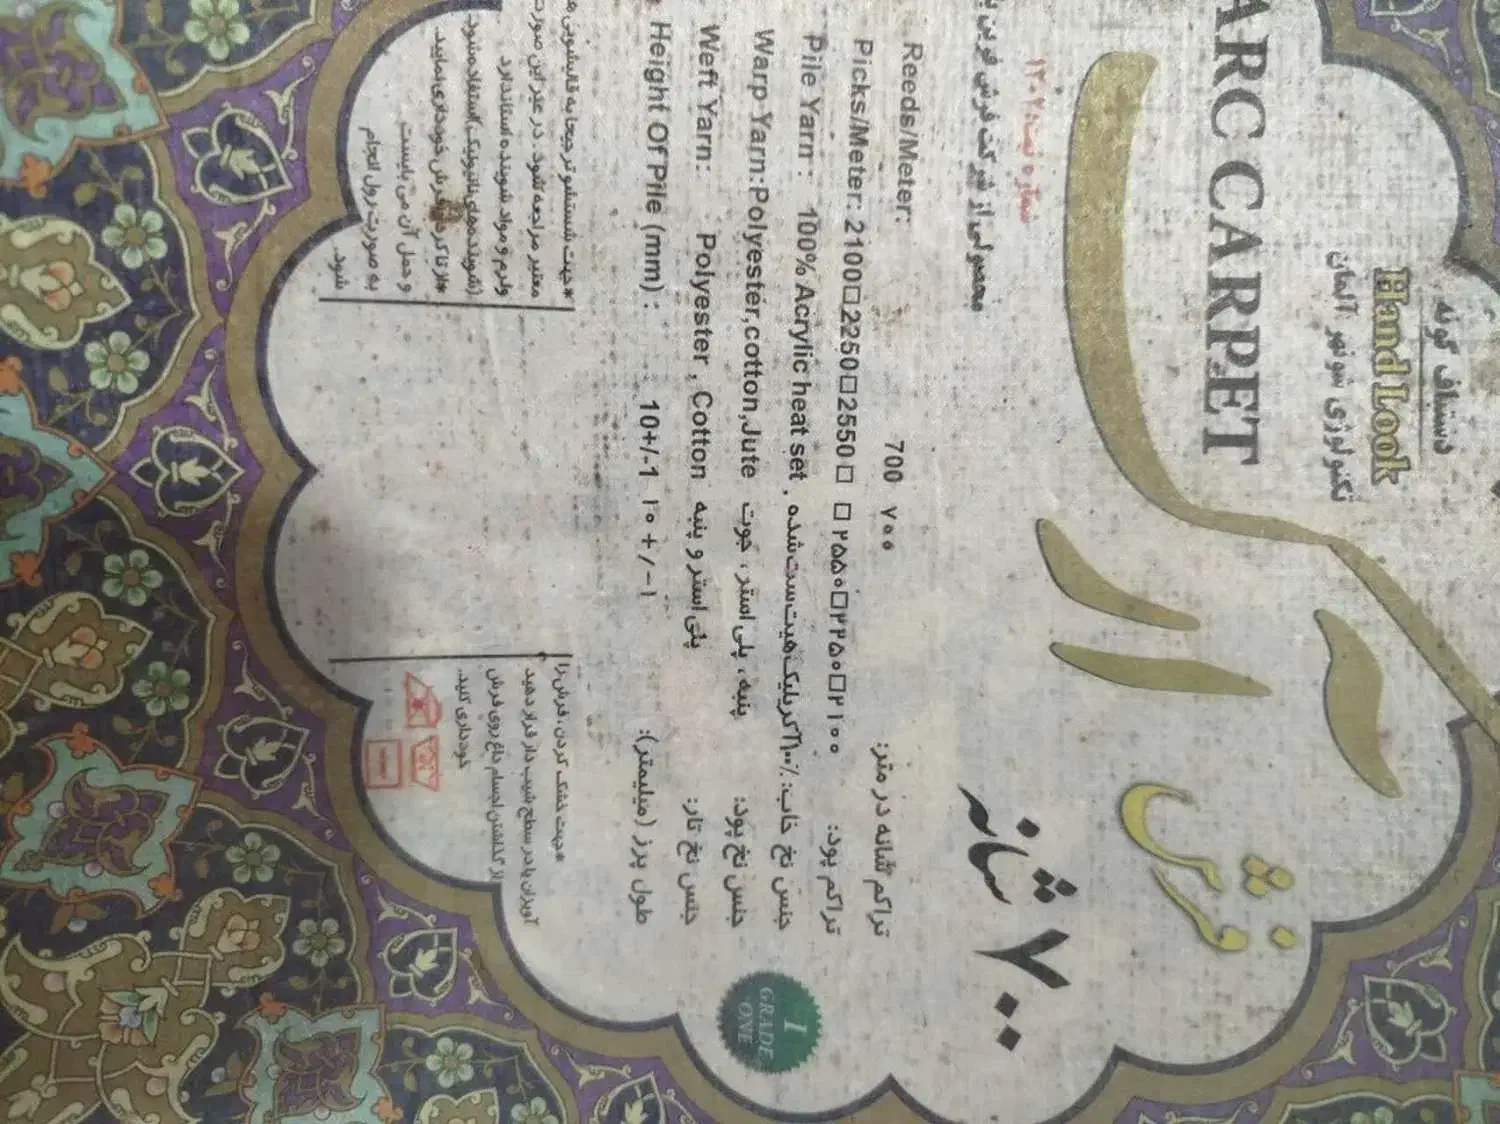 دستباف گونه
Hand Look
تکنولوژی شونهر آلمان
ARC CARPET
فرش
آرک
۷۰۰ شانه
شماره ثبت:
محصولی از شرکت فرش
Reeds/Meter: 700 ۷۰۰ تراکم شانه در متر:
Picks/Meter: 2100□2250□2550□ □۲۵۵۰□۲۲۵۰□۲۱۰۰ تراکم پود:
Pile Yarn : 100% Acrylic heat set , جنس نخ خاب: ۱۰۰٪ آکریلیک هیت ست شده
Warp Yarn:Polyester,cotton,Jute جنس نخ پود: پنبه، پلی استر، جوت
Weft Yarn: Polyester , Cotton جنس نخ تار: پلی استر و پنبه
Height Of Pile (mm) : 10+/-1 ۱۰+/-۱ طول پرز (میلیمتر):
1
GRADE
ONE
*جهت خشک کردن، فرش را
آویزان یا در سطح شیب دار قرار دهید
از گذاشتن اجسام داغ روی فرش
خودداری کنید.
*جهت شستشو ترجیحا به قالیشویی
معتبر مراجعه شود. در غیر این صورت
ولرم و مواد شوینده استاندارد
(شوینده های نانیونیک) استفاده شود
*از تا کردن فرش خودداری نمایید
و حمل آن می بایست
به صورت رول انجام
شود.